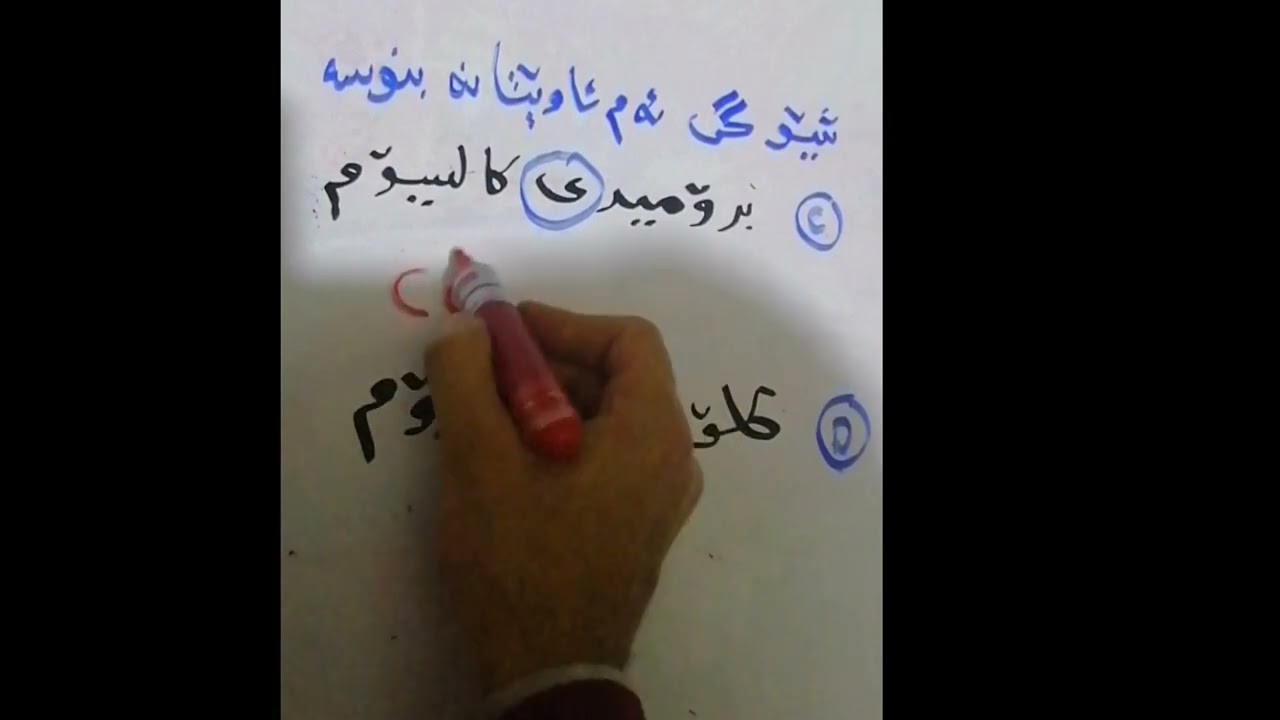 شێوگی ئەم ئاوێتانە بنوسە
٤ برۆمیدی کالسیۆم
C
٥ کلۆ ۆم